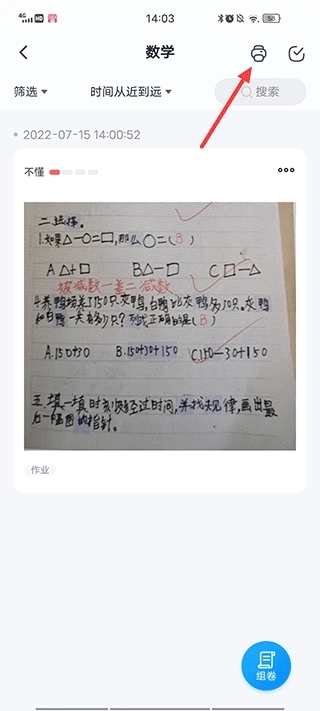 4G HD 14:03 58
数学
筛选 时间从近到远 搜索
2022-07-15 14:00:52
不懂
二.选择。
1.如果△-○=□,那么○=(B)
A △+□ B△-□ C □-△
被减数-差=减数
4.养鸭场养了150只灰鸭,白鸭比灰鸭多30只。灰鸭
和白鸭一共有多少只?列式正确的是(B)
A.150+30 B.150+30+150 C.150-30+150
五.填一填时刻或经过时间,并找规律,画出最
后一幅图的指针。
作业
组卷